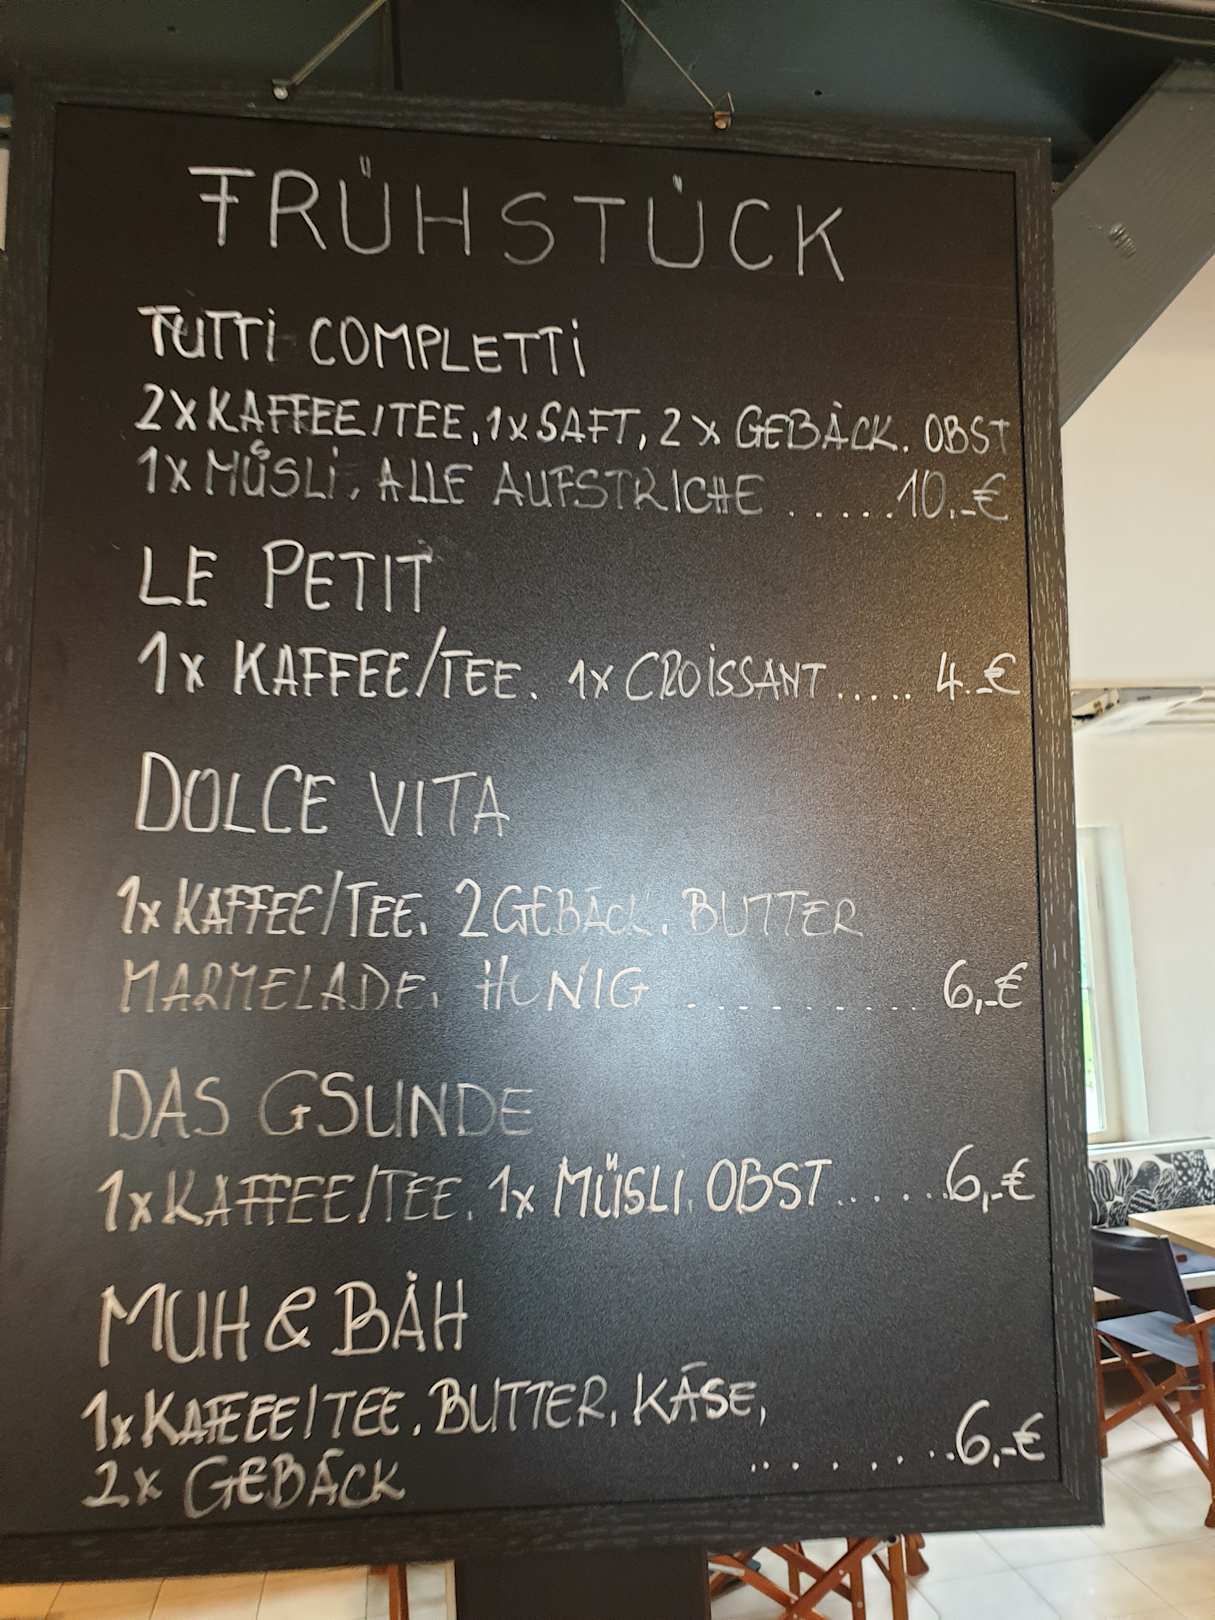 FRÜHSTÜCK
TUTTi COMPLETTi
2xKAFFEE/TEE, 1xSAFT, 2x GEBÄCK. OBST
1xMÜSLi, ALLE AUFSTRICHE .....10,-€
LE PETIT
1x KAFFEE/TEE. 1x CROiSSANT..... 4.-€
DOLCE VITA
1xKAFFEE/TEE. 2GEBÄCK. BUTTER
MARMELADE. HONIG .......... 6,-€
DAS GSUNDE
1xKAFFEE/TEE. 1x MÜSLI. OBST......6,-€
MUH & BÄH
1xKAFFEE/TEE. BUTTER. KÄSE,
2x GEBÄCK ........6,-€